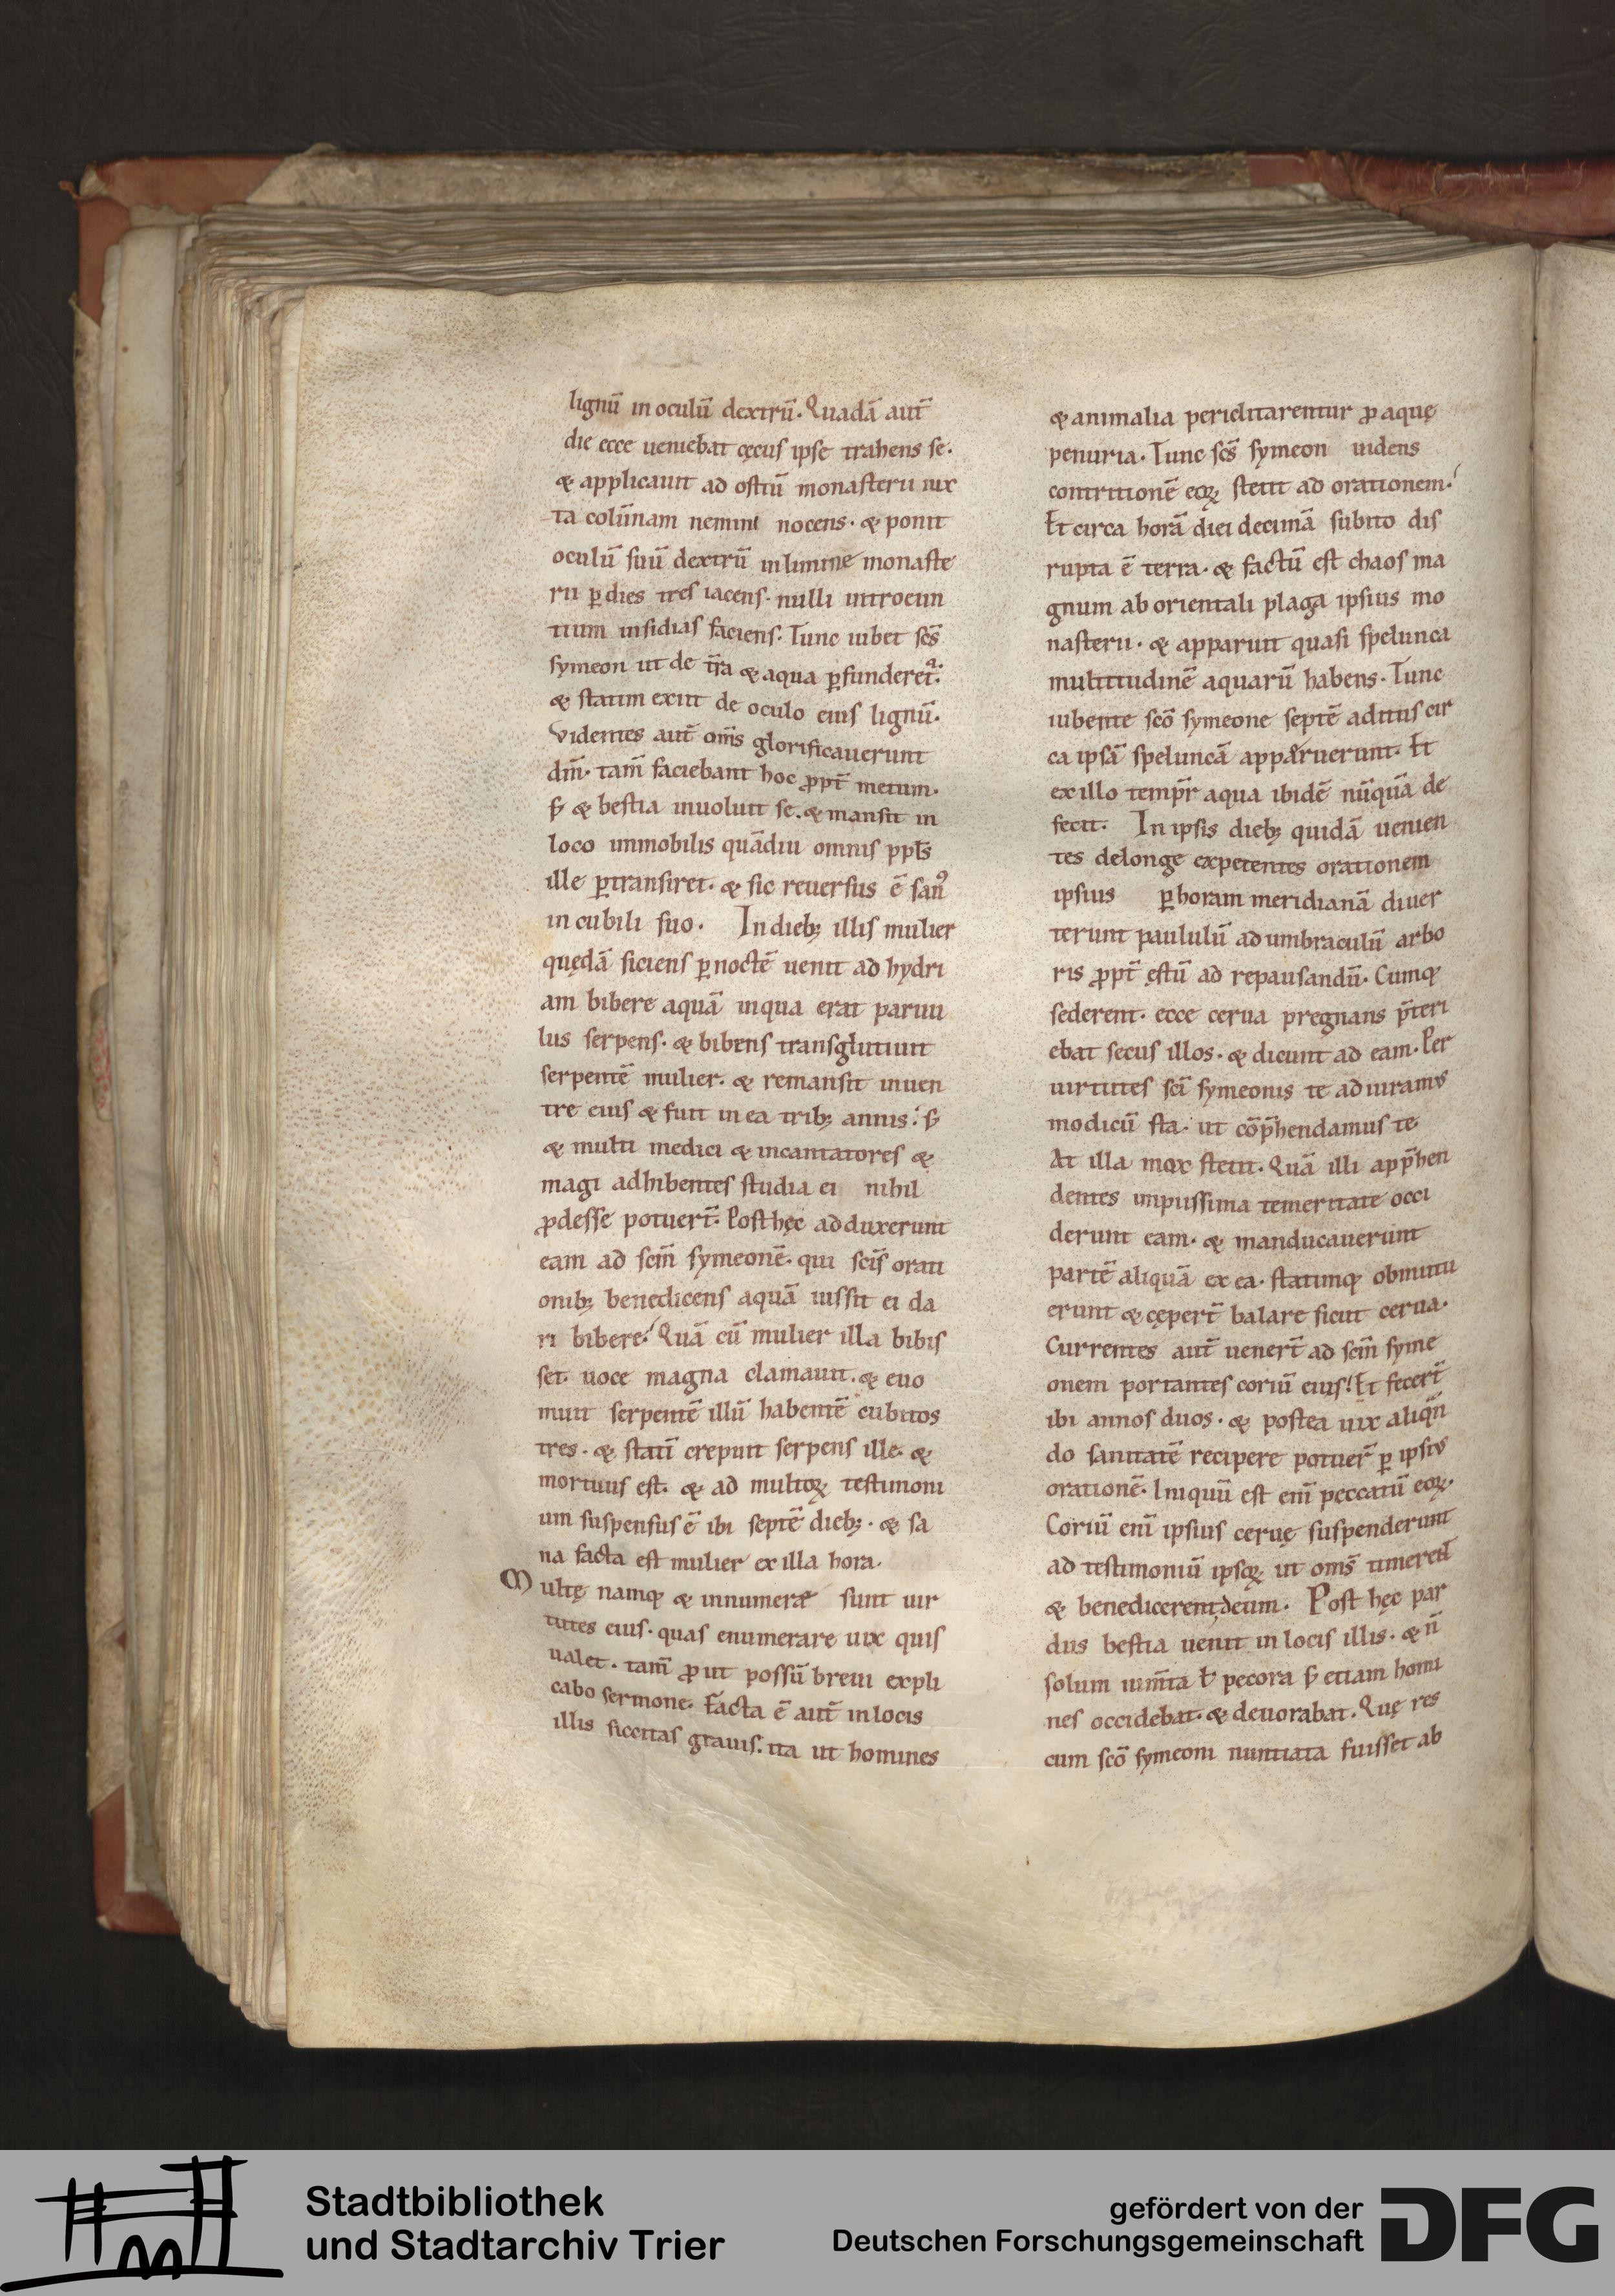 lignū in oculū dextrū. Quadā aut̄
die ecce ueniebat cęcus ipse trahens se.
& applicauit ad ostiū monasterii iux
ta colūnam nemini nocens. & ponit
oculū suū dextrū in limine monaste
rii ꝑ dies tres iacens. nulli introeun
tium insidias faciens. Tunc iubet sc̄s
symeon ut de tr̄a & aqua ꝑfunderet᷑.
& statim exiit de oculo eius lignū.
Videntes aut̄ om̄s glorificauerunt
dm̄. tam̄ faciebant hoc ꝓpt̄ metum.
s; & bestia inuoluit se. & mansit in
loco immobilis quādiu omnis ppłs
ille ꝑtransiret. & sic reuersus ē sanꝰ
in cubili suo. In dieb; illis mulier
quędā siciens ꝑ noctē uenit ad hydri
am bibere aquā in qua erat paruu
lus serpens. & bibens transglutiuit
serpentē mulier. & remansit in uen
tre eius & fuit in ea trib; annis. s;
& multi medici & incantatores &
magi adhibentes studia ei nihil
ꝓdesse potuer̄t. Post hęc adduxerunt
eam ad scm̄ symeonē. qui scīs orati
onib; benedicens aquā iussit ei da
ri bibere. Quā cū mulier illa bibis
set. uoce magna clamauit. & euo
muit serpentē illū habentē cubitos
tres. & statī crepuit serpens ille. &
mortuus est. & ad multoꝝ testimoni
um suspensus ē ibi septē dieb;. & sa
na facta est mulier ex illa hora.
Multę namq; & innumerę sunt uir
tutes eius. quas enumerare uix quis
ualet. tam̄ ꝓut possū breui expli
cabo sermone. Facta ē aut̄ in locis
illis siccitas grauis. ita ut homines
& animalia periclitarentur ꝓ aquę
penuria. Tunc sc̄s symeon uidens
contritionē eoꝝ stetit ad orationem.
Et circa horā diei decimā subito dis
rupta ē terra. & factū est chaos ma
gnum ab orientali plaga ipsius mo
nasterii. & apparuit quasi spelunca
multitudinē aquarū habens. Tunc
iubente scō symeone septē aditus cir
ca ipsā speluncā apparuerunt. Et
ex illo temp̄r aqua ibidē nūquā de
fecit. In ipsis dieb; quidā uenien
tes de longe expetentes orationem
ipsius ꝑ horam meridianā diuer
terunt paululū ad umbraculū arbo
ris ꝓpt̄ ęstū ad repausandū. Cumq;
sederent. ecce cerua pregnans p̄teri
ebat secus illos. & dicunt ad eam. Per
uirtutes scī symeonis te adiuramꝰ
modicū sta. ut cōp̄hendamus te.
At illa mox stetit. Quā illi app̄hen
dentes impiissima temeritate occi
derunt eam. & manducauerunt
partē aliquā ex ea. statimq; obmutu
erunt & cęper̄t balare sicut cerua.
Currentes aut̄ uener̄t ad scm̄ syme
onem portantes coriū eius. Et fecer̄t
ibi annos duos. & postea uix aliqn̄
do sanitatē recipere potuer̄ ꝑ ipsiꝰ
orationē. Iniquū est enī peccatū eoꝝ.
Coriū enī ipsius ceruę suspenderunt
ad testimoniū ipsoꝝ ut om̄s timerent
& benedicerent deum. Post hęc par
dus bestia uenit in locis illis. & n̄
solum ium̄ta ł pecora s; etiam homi
nes occidebat. & deuorabat. Quę res
cum scō symeoni nuntiata fuisset ab
Stadtbibliothek
und Stadtarchiv Trier
gefördert von der
Deutschen Forschungsgemeinschaft
DFG